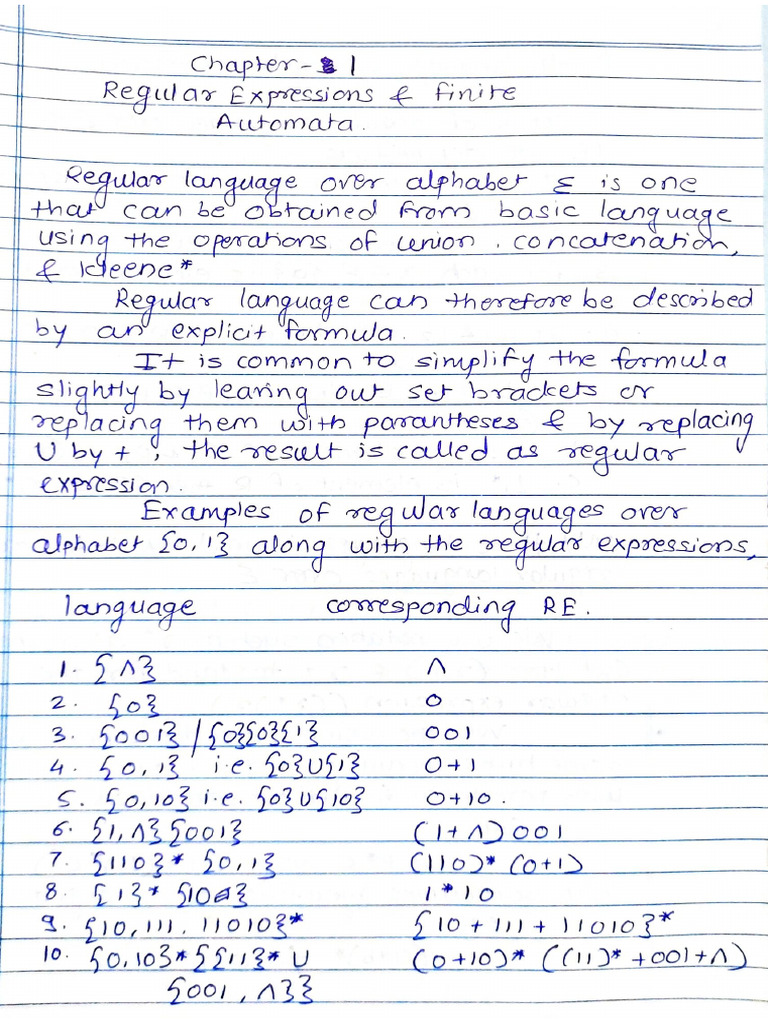 Chapter - 1
Regular Expressions & finite
Automata.
Regular language over alphabet Σ is one
that can be obtained from basic language
using the operations of union, concatenation,
& kleene*
Regular language can therefore be described
by an explicit formula.
It is common to simplify the formula
slightly by leaving out set brackets or
replacing them with parantheses & by replacing
U by + ; the result is called as regular
expression.
Examples of regular languages over
alphabet {0,1} along with the regular expressions,
language corresponding RE.
1. {Λ} Λ
2. {0} 0
3. {001} / {0}{0}{1} 001
4. {0,1} i.e. {0}U{1} 0+1
5. {0,10} i.e. {0}U{10} 0+10.
6. {1,Λ}{001} (1+Λ)001
7. {110}* {0,1} (110)* (0+1)
8. {1}* {10} 1*10
9. {10,111,11010}* {10+111+11010}*
10. {0,10}*{{11}* U (0+10)* ((11)* +001+Λ)
{001,Λ}}